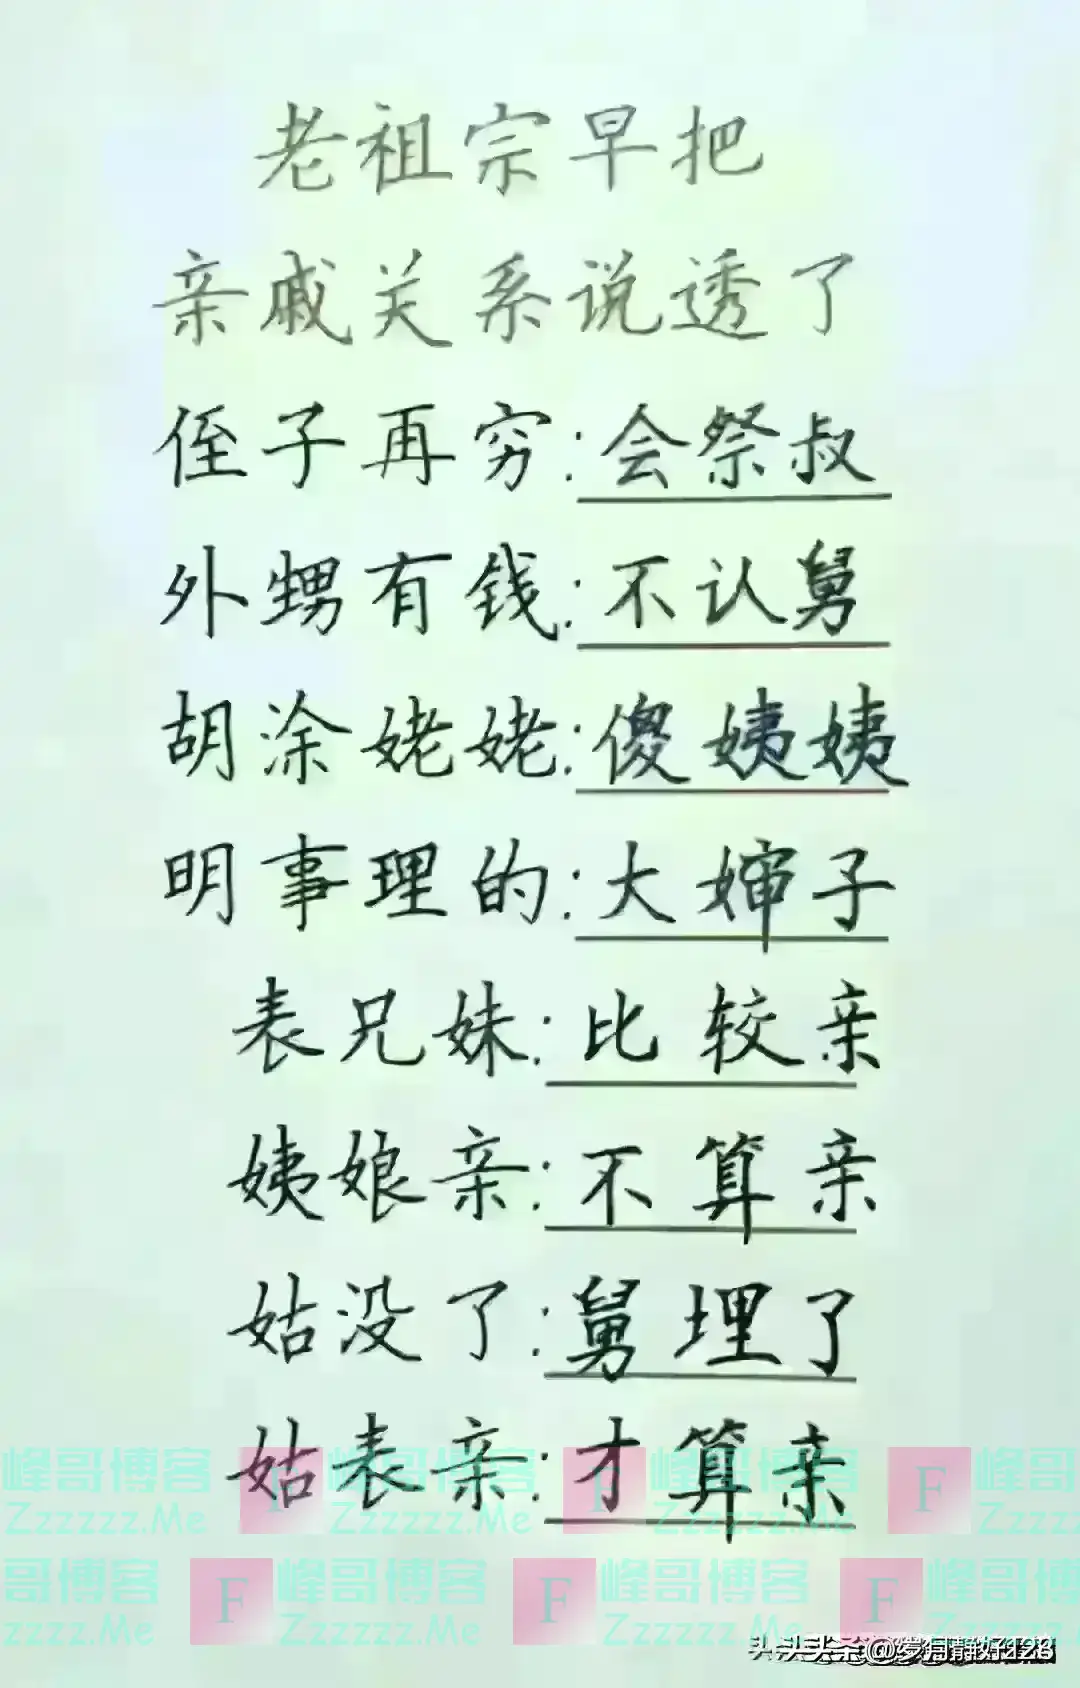 老祖宗早把
亲戚关系说透了
侄子再穷:会祭叔
外甥有钱:不认舅
胡涂姥姥:傻姨姨
明事理的:大婶子
表兄妹:比较亲
姨娘亲:不算亲
姑没了:舅埋了
姑表亲:才算亲
峰哥博客 F 峰哥博客 F 峰哥博客 F 峰哥博客
Zzzzzz.Me Zzzzzz.Me Zzzzzz.Me Zzzzz
哥博客 F 峰哥博客 F 峰哥博客 F 峰哥
zzzz.Me Zzzzzz.Me Zzzzzz.Me Zzzz